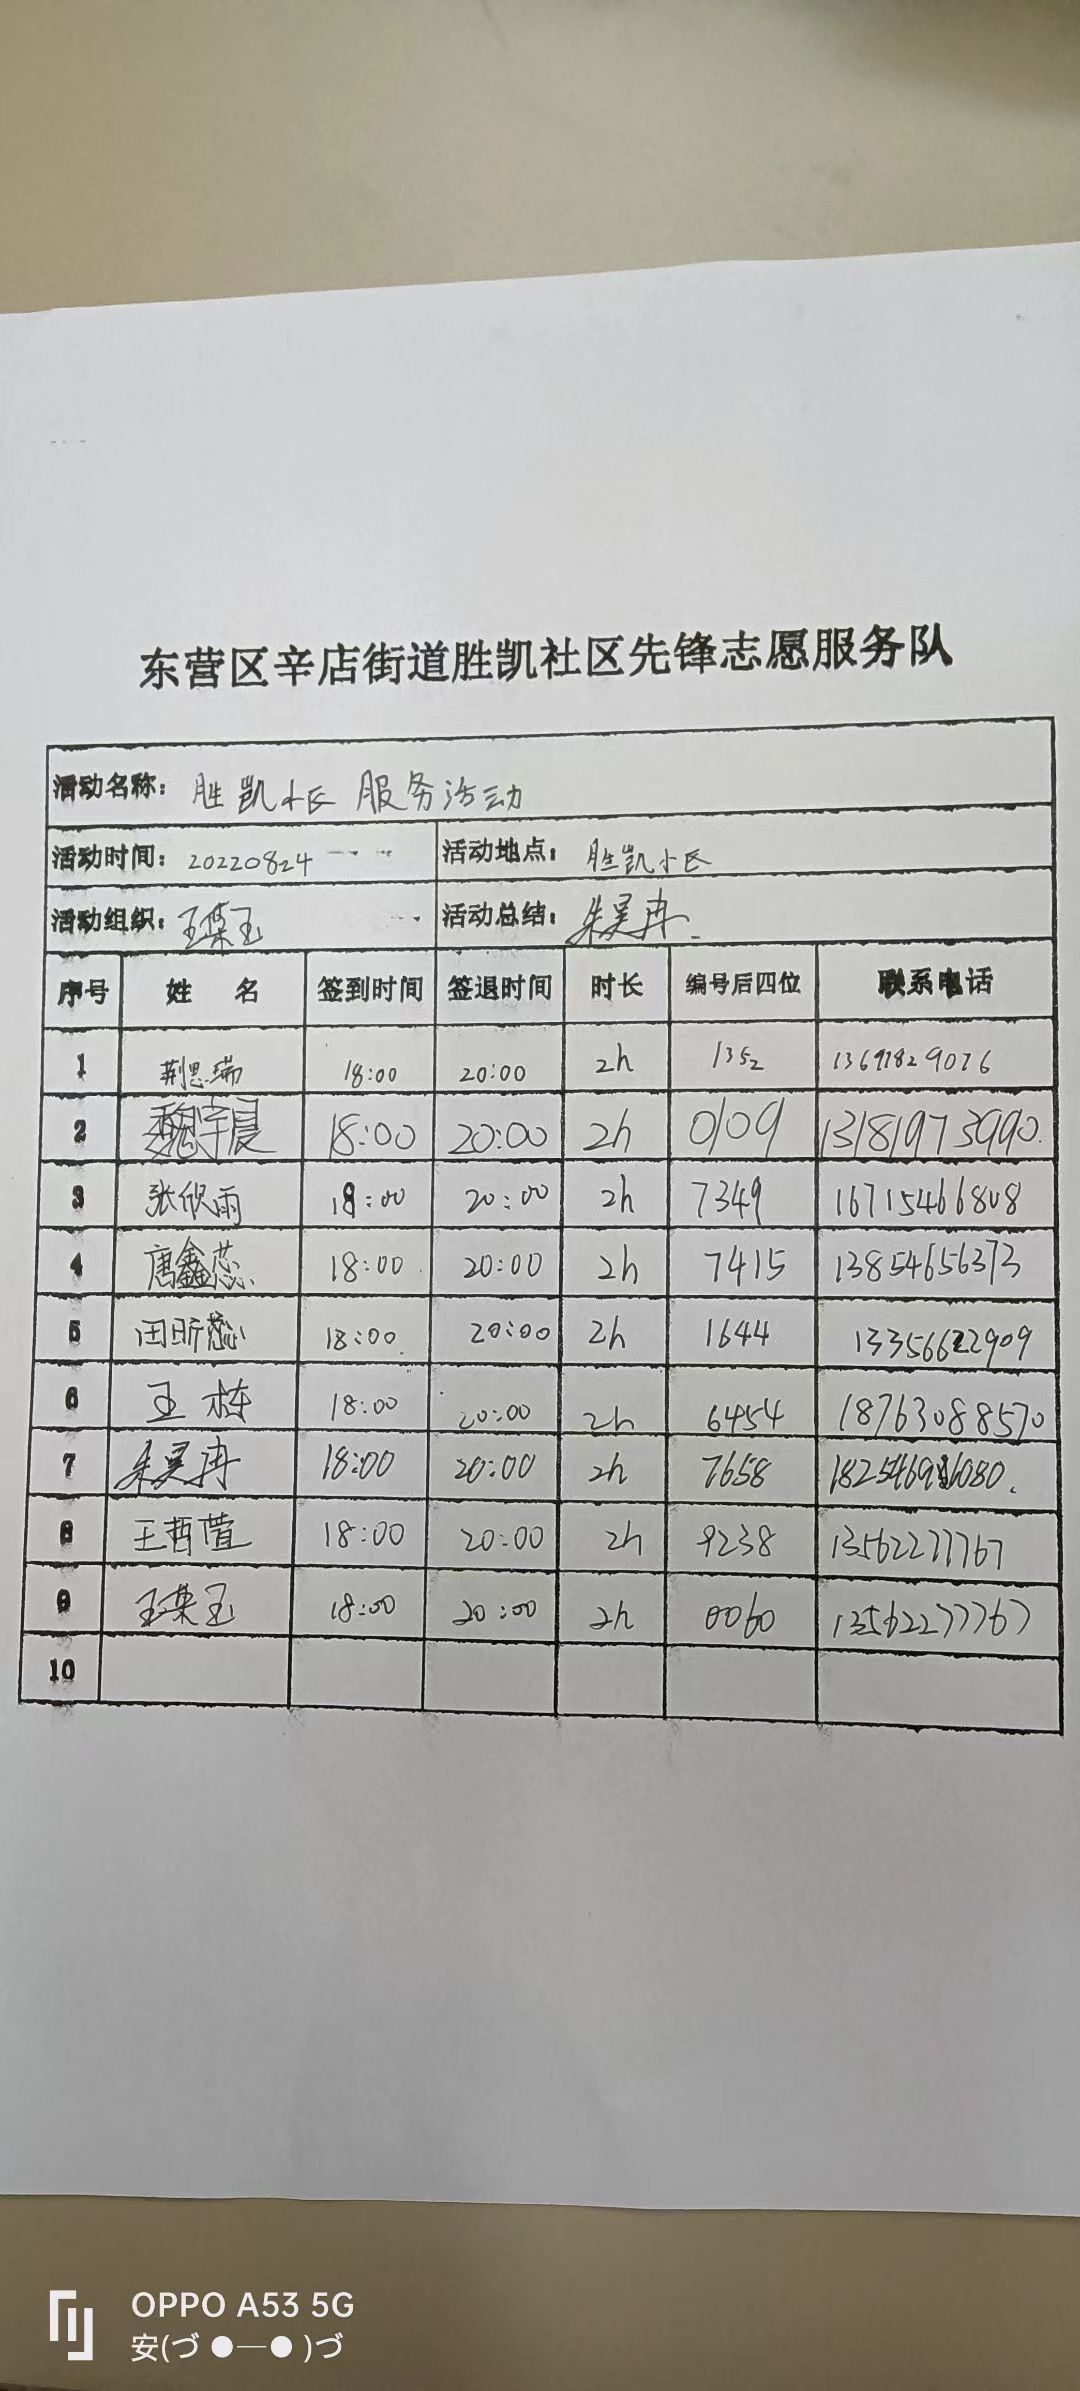 东营区辛店街道胜凯社区先锋志愿服务队
活动名称： 胜凯小区 服务活动
活动时间：20220824 活动地点： 胜凯小区
活动组织： 活动总结：
序号 姓 名 签到时间 签退时间 时长 编号后四位 联系电话
1 荆思瑞 18:00 20:00 2h 1352
2 魏宇晨 18:00 20:00 2h 0109 13181973990.
3 张欣雨 18:00 20:00 2h 7349 16715466808
4 唐鑫蕊 18:00 20:00 2h 7415 13854656373
5 田昕蕊 18:00 20:00 2h 1644 13356622909
6 王栋 18:00 20:00 2h 6454 18763088570
7 18:00 20:00 2h 7658
8 王哲萱 18:00 20:00 2h 9238 13562277767
9 18:00 20:00 2h 0060 13562277767
10
OPPO A53 5G
安(づ ●─● )づ